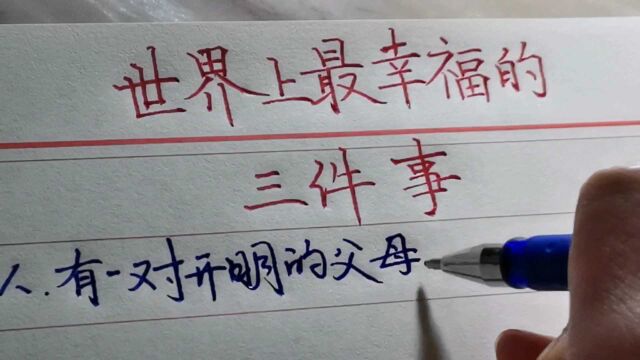 世界上最幸福的
三件事
1、有一对开明的父母